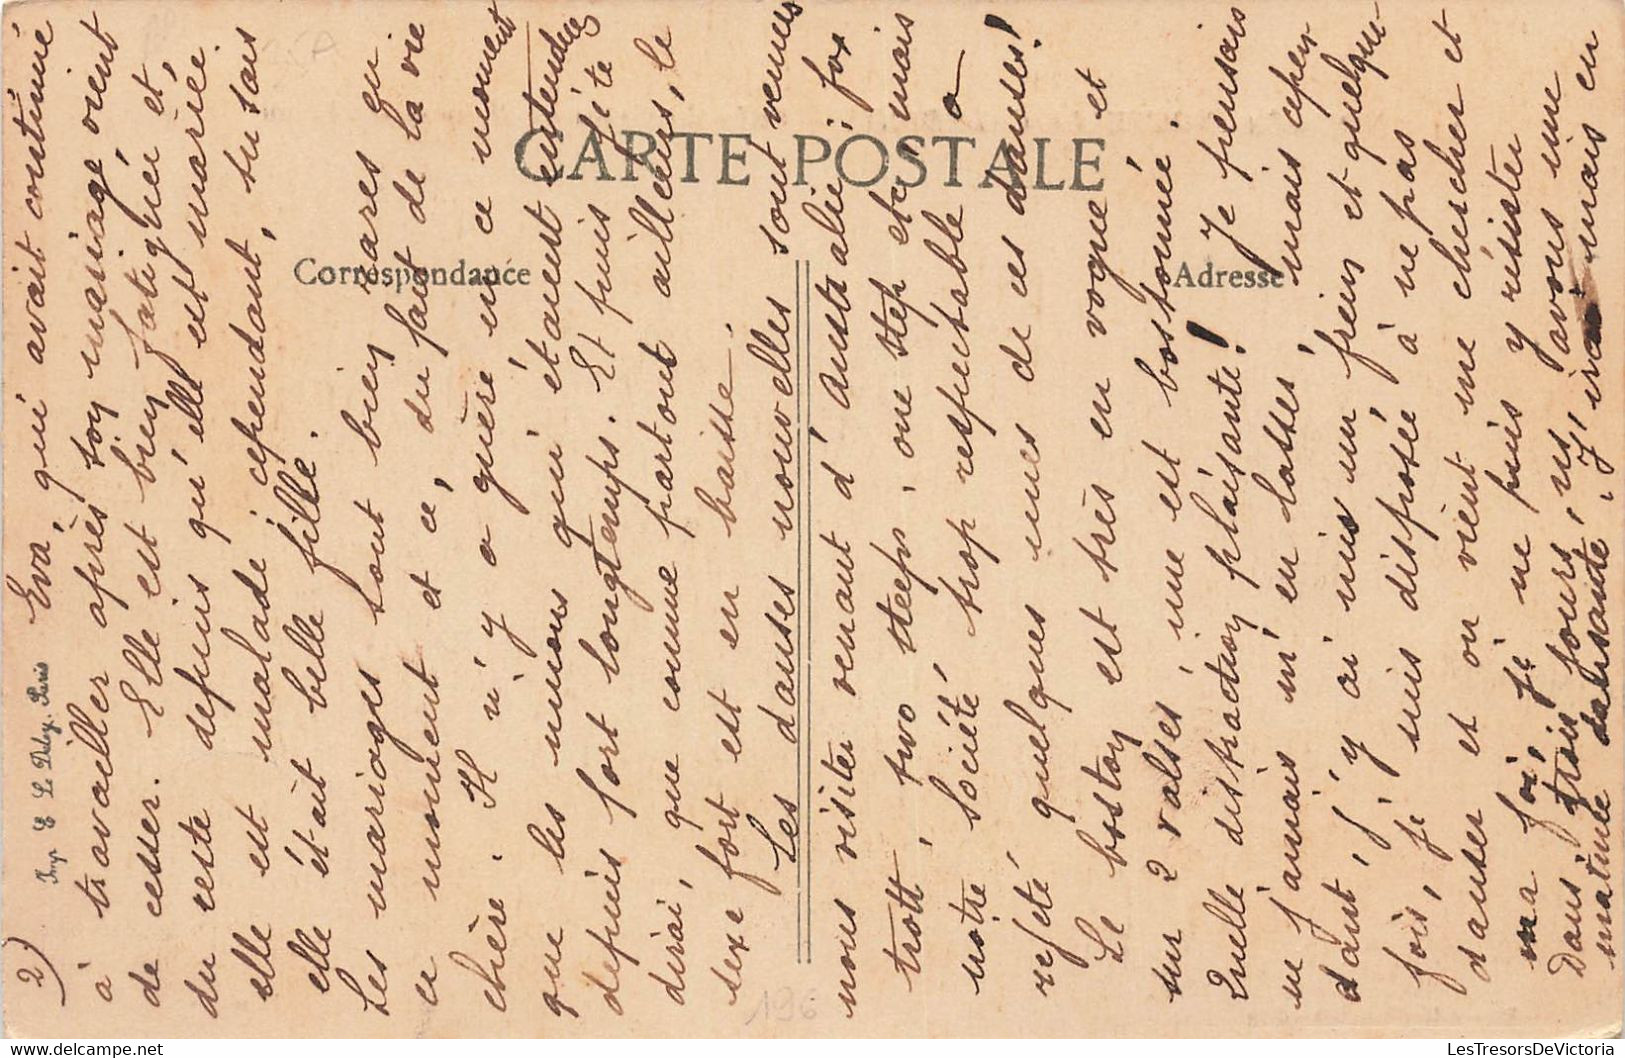 2) Eva, qui avait continué
à travailler après son mariage vient
de cesser. Elle est bien fatiguée et,
du reste depuis qu'elle est mariée
elle est malade, cependant, tu sais
elle était belle fille.
Les mariages sont bien rares en
ce moment et ce, du fait de la vie
chère. Il n'y a guère en ce moment
que les unions qui étaient entendues
depuis fort longtemps. Et puis fête
dirai, que comme partout ailleurs, le
sexe fort est en baisse.
Les danses nouvelles sont venues
nous visiter venant d'Australie; fox
trott, two steeps, one step etc mais
notre société trop respectable a
rejeté quelques unes de ces danses!
Le boston est très en vogue et
sur 2 valses, une est bostonnée.
Quelle distraction plaisante! Je pensais
ne jamais m'en lasser, mais cepen-
dant, j'y ai mis un frein et quelque-
fois, je suis disposée à ne pas
danser et on vient me chercher et
ma foi, je ne puis y résister
Dans trois jours, ns avons une
matinée dansante. J'irai mais en
CARTE POSTALE
Correspondance
Adresse
Imp. E. Le Deley, Paris
196
LesTresorsDeVictoria